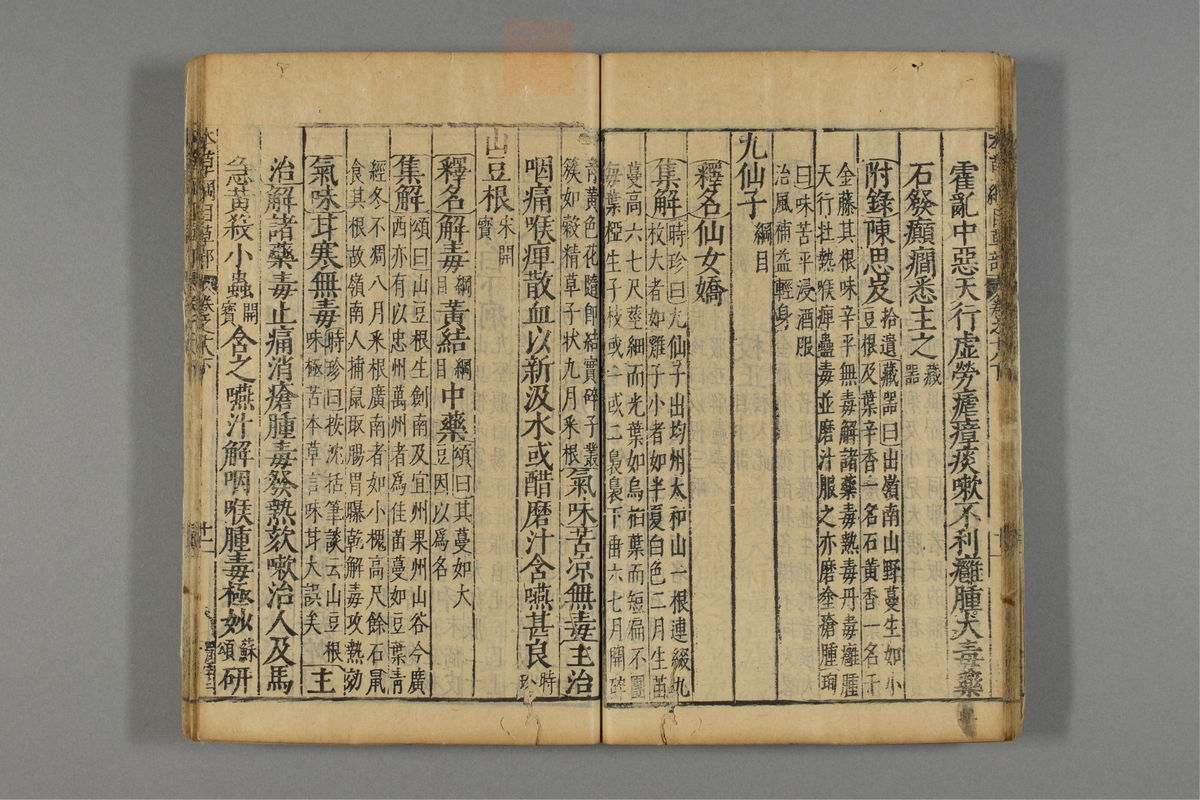 霍亂中惡天行虛勞瘧瘴痰嗽不利癰腫大毒藥
石發癲癇悉主之藏器
附錄陳思岌拾遺藏器曰出嶺南山野蔓生如小
豆根及葉辛香一名石黃香一名千
金藤其根味辛平無毒解諸藥毒熱毒丹毒癰腫
天行壯熱喉痺蠱毒並磨汁服之亦磨塗瘡腫珣
曰味苦平浸酒服
治風補益輕身
九仙子綱目
釋名仙女嬌
集解時珍曰九仙子出均州太和山一根連綴九
枚大者如雞子小者如半夏白色二月生苗
蔓高六七尺莖細而光葉如烏桕葉而短扁不團
每葉椏生子枝或一或二裊裊下垂六七月開碎
青黃色花隨即結實碎子叢
簇如穀精草子狀九月采根氣味苦涼無毒主治
咽痛喉痺散血以新汲水或醋磨汁含嚥甚良時珍
山豆根宋開寶
釋名解毒綱目黃結綱目中藥頌曰其蔓如大
豆因以爲名
集解頌曰山豆根生劍南及宜州果州山谷今廣
西亦有以忠州萬州者為佳苗蔓如豆葉青
經冬不凋八月采根廣南者如小槐高尺餘石鼠
食其根故嶺南人捕鼠取腸胃曝乾解毒攻熱効
氣味甘寒無毒時珍曰按沈括筆談云山豆根
味極苦本草言味甘大誤矣主
治解諸藥毒止痛消瘡腫毒發熱欬嗽治人及馬
急黃殺小蟲開寶含之嚥汁解咽喉腫毒極妙蘇頌研
本草綱目草部
卷之十八下
十一